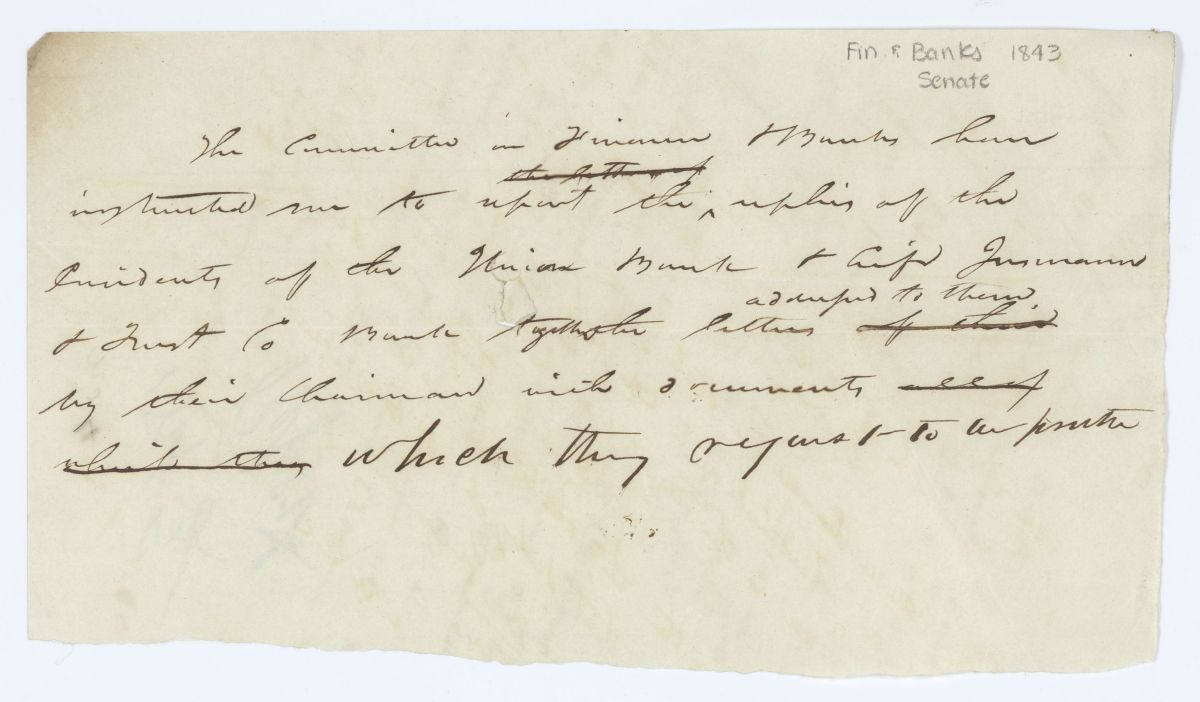 Fin & Banks 1843
Senate
The Committee on Finance & Banks have
the letters of
instructed me to report the replies of the
Presidents of the Union Bank & Life Insurance
addressed to them
& Trust Co Bank together the letters of their
by their Chairman with documents all of
which they which they request to be printed